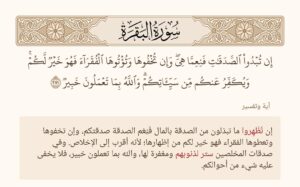 سُورَةُ البَقَرَةِ
إِن تُبْدُوا۟ ٱلصَّدَقَـٰتِ فَنِعِمَّا هِىَ ۖ وَإِن تُخْفُوهَا وَتُؤْتُوهَا ٱلْفُقَرَآءَ فَهُوَ خَيْرٌ لَّكُمْ ۚ
وَيُكَفِّرُ عَنكُم مِّن سَيِّـَٔاتِكُمْ ۗ وَٱللَّهُ بِمَا تَعْمَلُونَ خَبِيرٌ ٢٧١
آية وتفسير
إن تُظهروا ما تبذلون من الصدقة بالمال فَنِعْمَ الصدقة صدقتكم. وإن تخفوها
وتعطوها الفقراء فهو خير لكم من إظهارها؛ لأنه أقرب إلى الإخلاص. وفي
صدقات المخلصين ستر لذنوبهم ومغفرة لها. والله بما تعملون خبير، فلا يخفى
عليه شيء من أحوالكم.